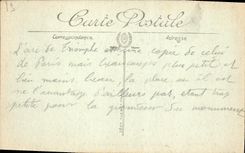 Carte Postale
Correspondance Adresse
L'arc de Triomphe copie de celui
de Paris mais beaucoup plus petit et
bien moins beau la place où il est
ne l'avantage d'ailleurs pas, étant trop
petite pour la grandeur du monument